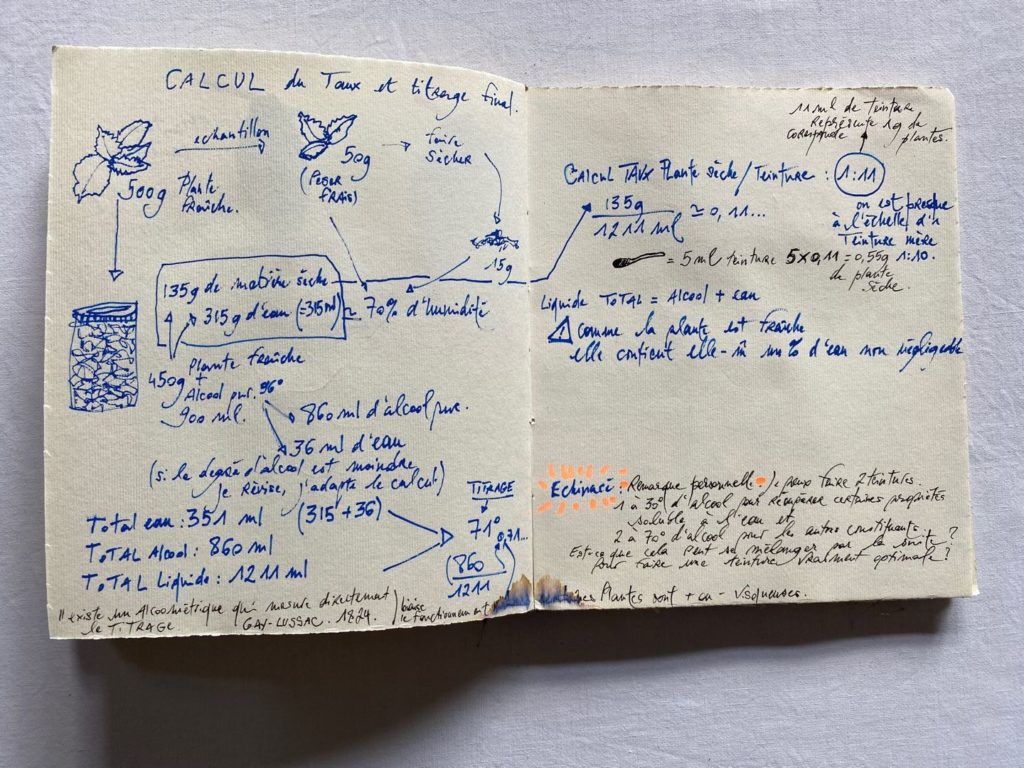 CALCUL du Taux et titrage final.
500g
Plante
fraîche.
echantillon
50g
(Peser
FRAIS)
faire
sécher
15g
135g de matière sèche
315g d'eau (=315ml)
≃ 70% d'humidité
450g
Plante fraîche
+
Alcool pur. 96°
900 ml.
860 ml d'alcool pur.
36 ml d'eau
(si le degré d'alcool est moindre
je révise, j'adapte le calcul)
Total eau : 351 ml (315 + 36)
ToTAL Alcool : 860 ml
ToTAL Liquide : 1211 ml
TITRAGE
71°
0,71...
860
1211
Il existe un Alcoométrique qui mesure directement
le TITRAGE GAY-LUSSAC. 1824.
biaise
le fonctionnement
11 ml de teinture
Représente 1g de
correspnde plantes.
CALCUL TAUX Plante sèche/Teinture : 1:11
135g
1211 ml
≃ 0,11...
on est presque
à l'échelle d'1
Teinture mère
1:10.
= 5 ml teinture 5x0,11 = 0,55g
de plante
sèche.
Liquide ToTAL = Alcool + eau
comme la plante est fraîche
elle contient elle-m un % d'eau non négligeable
Echinacé : Remarque personnelle. je peux faire 2 teintures.
1 à 30° d'alcool pour récupérer certaines propriétés
soluble à l'eau et
2 à 70° d'alcool pour les autres constituants.
Est-ce que cela peut se mélanger par la suite ?
pour faire une teinture vraiment optimale ?
Plantes sont + ou - visqueuses.